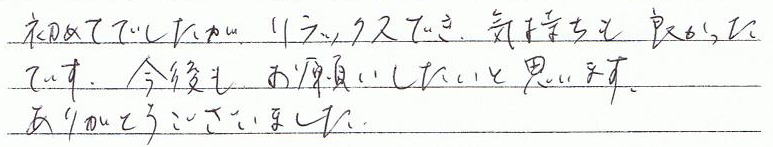 初めてでしたが、リラックスでき、気持ちも良かった
です。今後も お願いしたいと思います。
ありがとうございました。